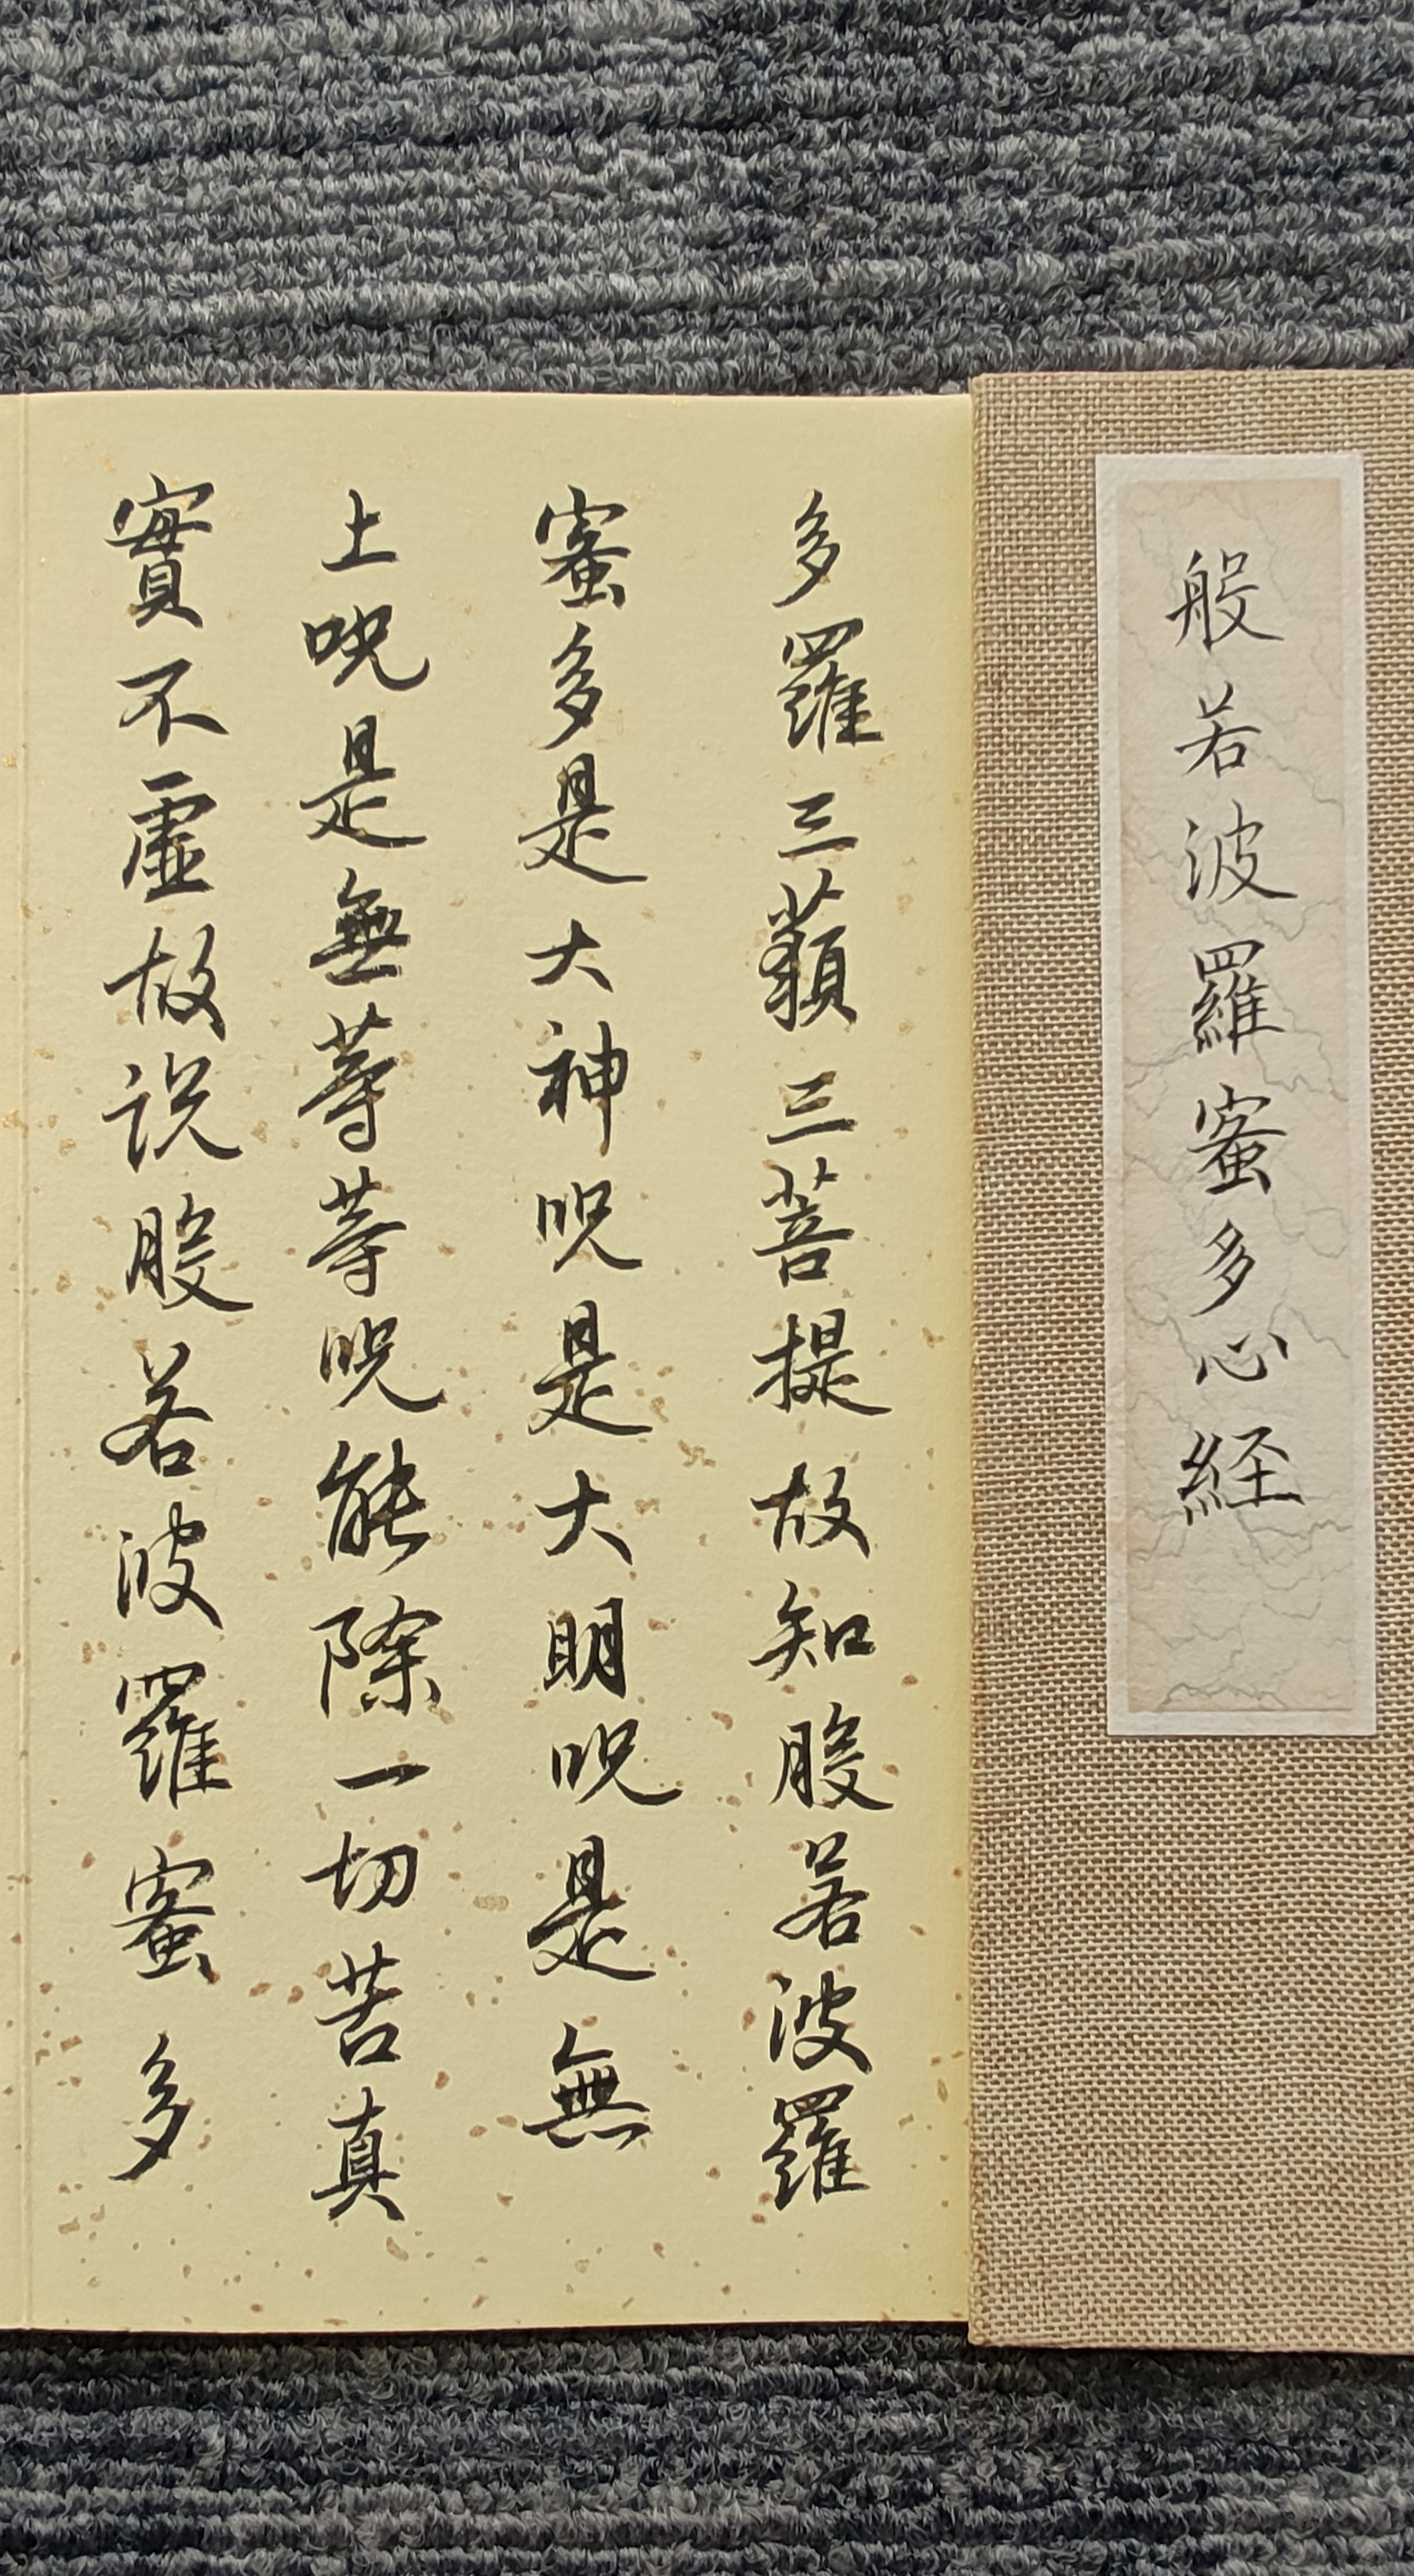 般若波羅蜜多心経
多羅三藐三菩提故知般若波羅
蜜多是大神呪是大明呪是無
上呪是無等等呪能除一切苦真
實不虛故説般若波羅蜜多